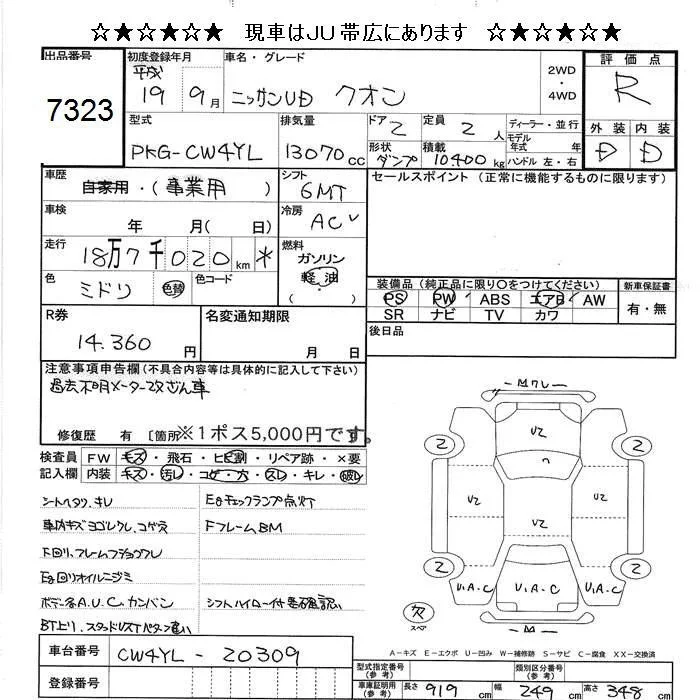 ☆★☆★☆★ 現車はJU帯広にあります ☆★☆★☆★
出品番号 7323
初度登録年月 平成 19年 9月
車名・グレード ニッサンUD クオン
2WD ・ 4WD
評価点 R
外装 内装 D D
型式 PKG-CW4YL
排気量 13070cc
ドア 2
定員 2人
形状 ダンプ
積載 10400kg
ディーラー・並行
モデル年式 年
ハンドル 左・右
車歴 自家用・(事業用)
シフト 6MT
セールスポイント (正常に機能するものに限ります)
車検 年 月( 日)
冷房 AC
走行 18万7千020km *
燃料 ガソリン 軽油 ( )
色 ミドリ 色替
色コード
装備品 (純正品に限り○をつけてください)
新車保証書
PS PW ABS エアB AW
有・無
SR ナビ TV カワ
R券 14.360円
名変通知期限 月 日
後日品
注意事項申告欄(不具合内容等は具体的に記入して下さい)
過去不明メーター改ざん車
修復歴 有 〔箇所 ※1ポス5,000円です。
検査員記入欄
FW キズ・飛石・ヒビ割・リペア跡・×要
内装 キズ・汚レ・コゲ・穴・スレ・キレ・破レ
シートヘタリ、キレ
車内キズヨゴレクレ、コゲ穴
下回リ、フレームフショクフレ
Eg回リオイルニジミ
ボデー各A.U.C.カンバン
Egチェックランプ点灯
FフレームBM
M クレ
U2
U2
U2
U2
2
2
2
2
U.A.C
U.A.C
U.A.C
M
スペ
A-キズ E-エクボ U-凹み W-補修跡 S-サビ C-腐食 XX-交換済
車台番号 CW4YL-20309
登録番号
型式指定番号 (参考)
類別区分番号 (参考)
車庫証明用 (参考) 長さ 919cm 幅 249cm 高さ 348cm